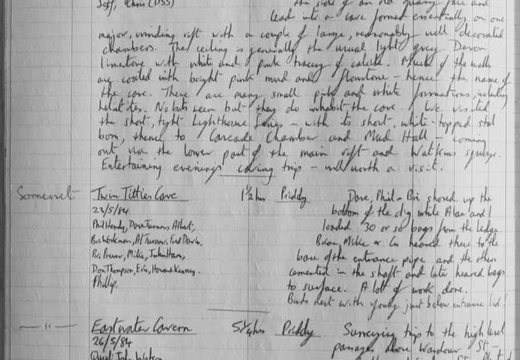 the side of an old quarry face and
leads into a cave formed essentially on one
major, winding rift with a couple of large, reasonably well decorated
chambers. The ceiling is generally the usual light grey Devon
limestone with white and pink tracery of calcite. Much of the walls
are coated with bright pink mud and flowstone - hence the name of
the cave. There are many small pink and white formations, including
helictites. No bats seen but they do inhabit the cave. We visited
the short, tight Lighthouse Series - with its short, white-topped stal
boss, thence to Cascade Chamber and Mud Hall - coming
out via the lower part of the main rift and Watkins squeeze.
Entertaining evenings' caving trip - well worth a visit.
Somerset Twin Titties Cave 1½ hrs Priddy Dave, Phil + Bri shored up the
23/5/84 bottom of the dig while Alan and I
loaded 30 or so bags from the ledge.
Brian, Mike or Co heaved these to the
base of the entrance pipe and the others
cemented in the shaft and later heaved bags
to surface. A lot of work done.
Phillip. Birds nest with young just below entrance lid!
-"- Eastwater Cavern 5¼ hrs Priddy Surveying trip to the high level
26/5/84 passages above Wardour St. -